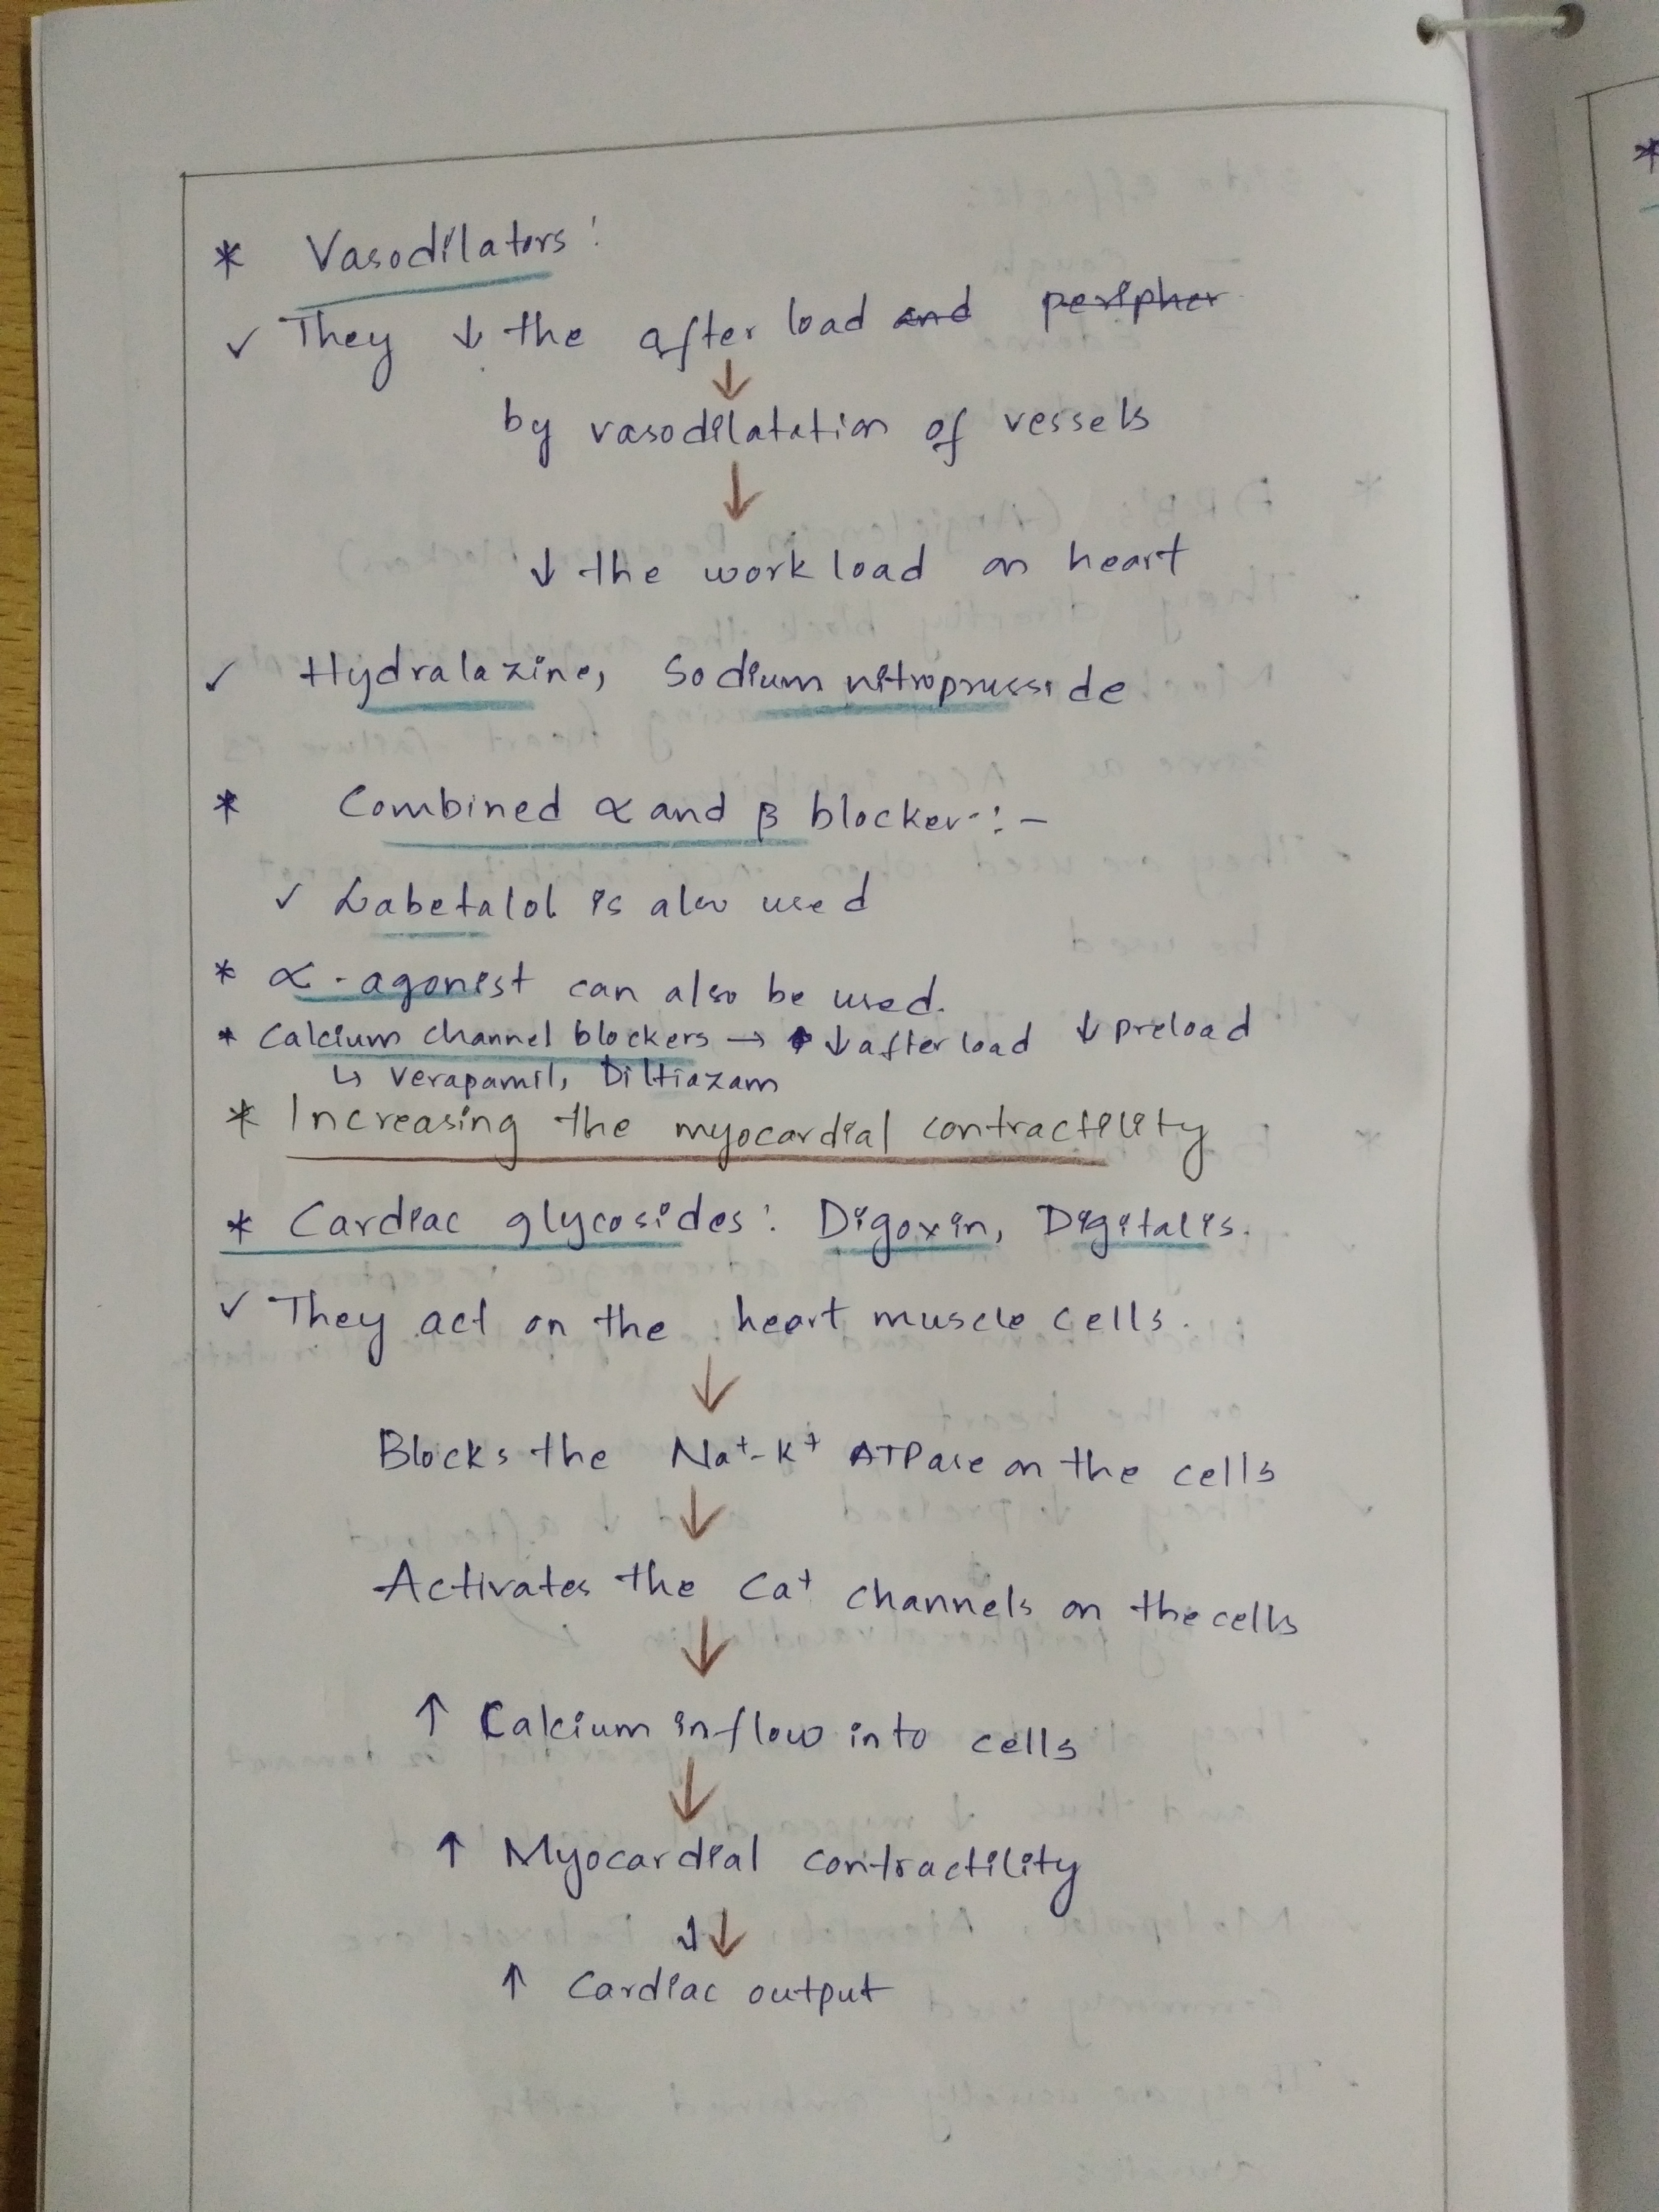 * Vasodilators:
✓ They ↓ the after load and peripher
↓
by vasodilatation of vessels
↓
↓ the work load on heart
✓ Hydralazine, Sodium nitroprusside
* Combined α and β blocker-:-
✓ Labetalol is also used
* α-agonist can also be used.
* Calcium channel blockers → ↓ after load ↓ preload
↳ Verapamil, Diltiazam
* Increasing the myocardial contractility
* Cardiac glycosides: Digoxin, Digitalis.
✓ They act on the heart muscle cells.
↓
Blocks the Na⁺-K⁺ ATPase on the cells
↓
Activates the Ca⁺ channels on the cells
↓
↑ Calcium inflow into cells
↓
↑ Myocardial contractility
↓↓
↑ Cardiac output